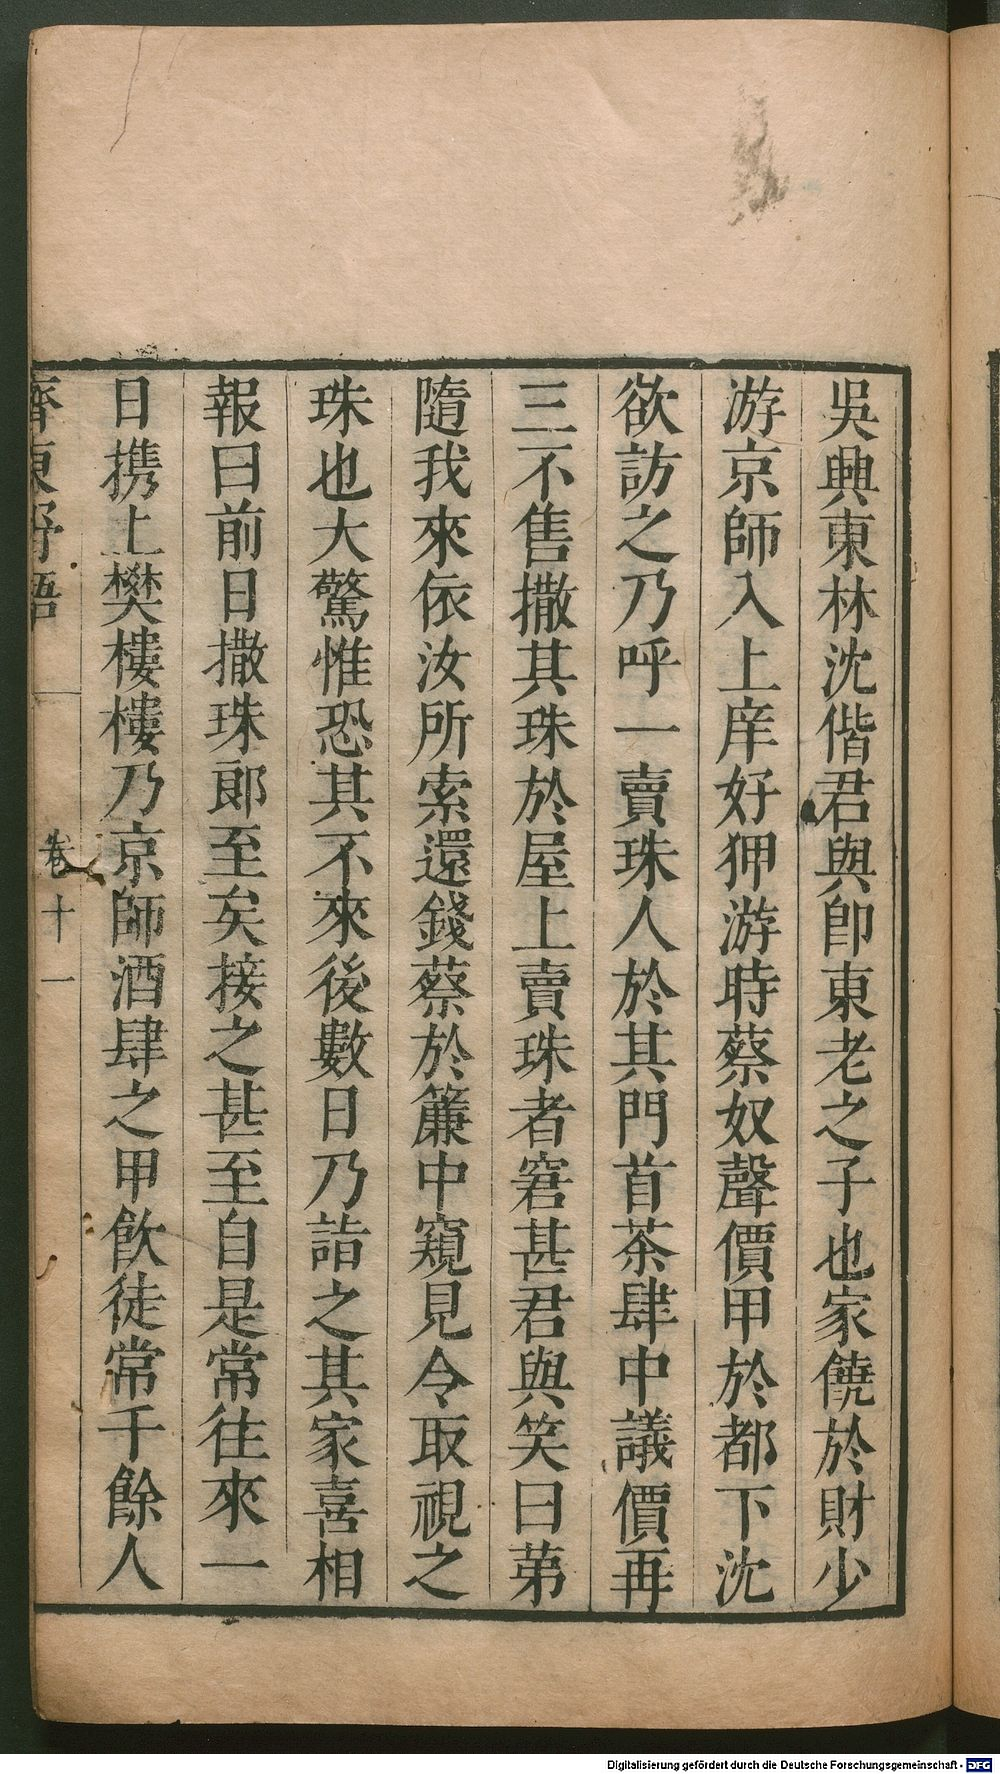 吳興東林沈偕君與卽東老之子也家饒於財少
游京師入上庠好狎游時蔡奴聲價甲於都下沈
欲訪之乃呼一賣珠人於其門首茶肆中議價再
三不售撒其珠於屋上賣珠者窘甚君與笑曰苐
隨我來依汝所索還錢蔡於簾中窺見令取視之
珠也大驚惟恐其不來後數日乃詣之其家喜相
報曰前日撒珠郎至矣接之甚至自是常往來一
日携上樊樓樓乃京師酒肆之甲飲徒常千餘人
齊東野語
卷十一
Digitalisierung gefördert durch die Deutsche Forschungsgemeinschaft - DFG